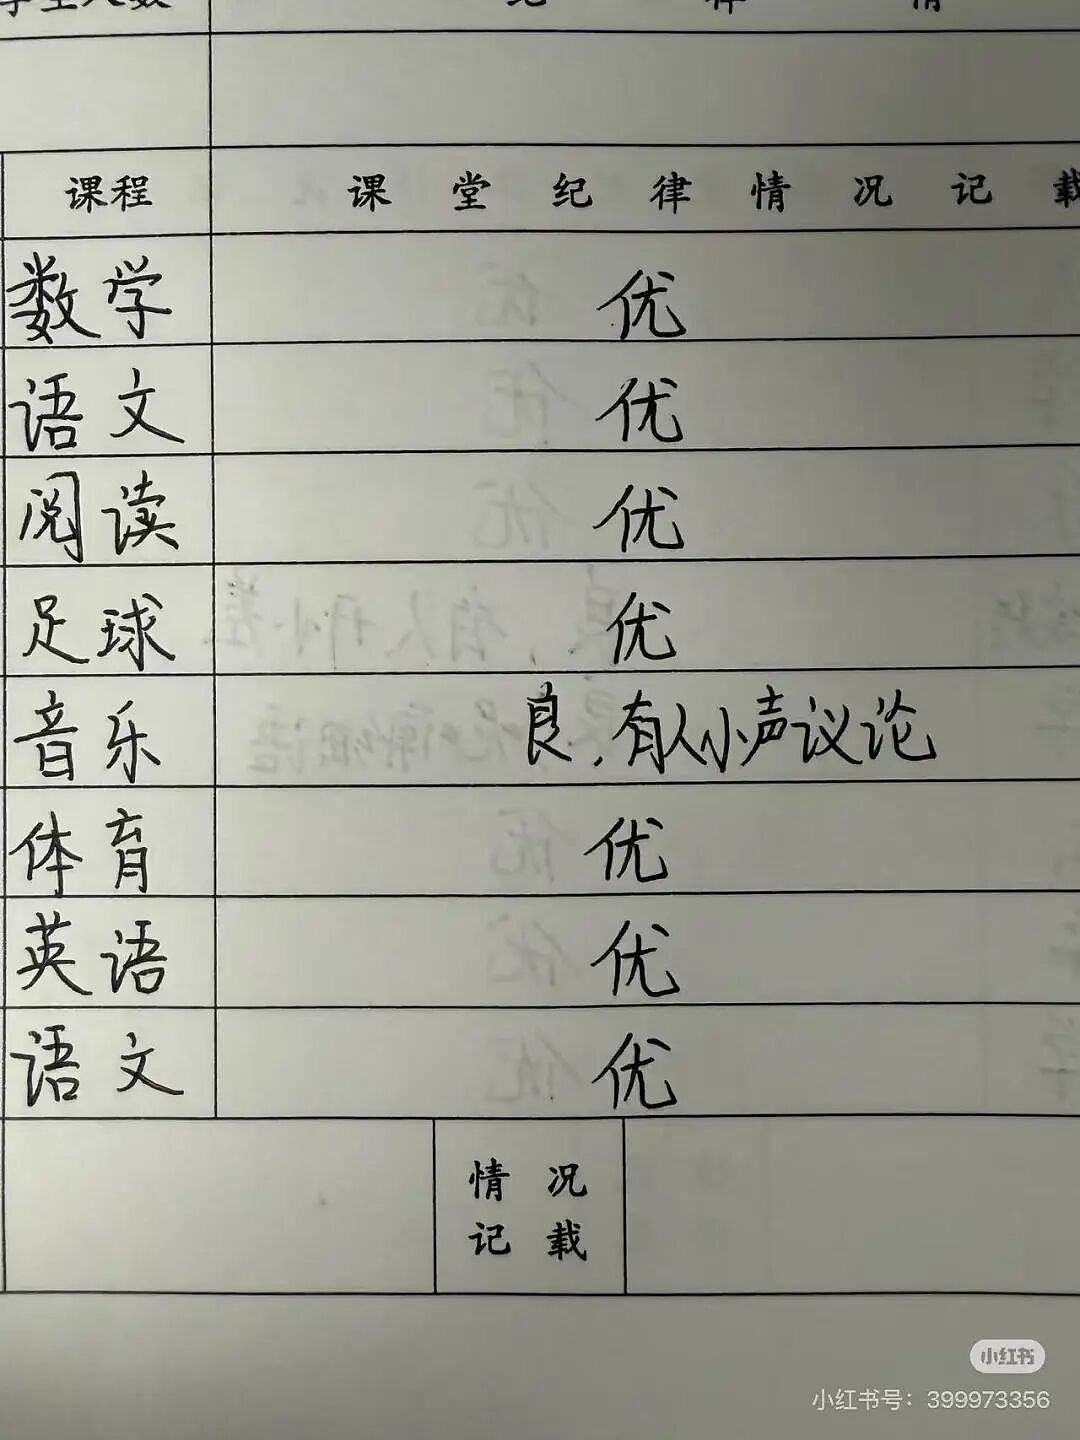 课程 课堂纪律情况记载
数学 优
语文 优
阅读 优
足球 优
音乐 良，有人小声议论
体育 优
英语 优
语文 优
情况
记载
小红书
小红书号：399973356